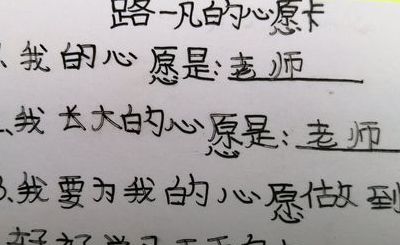 路一凡的心愿卡
1.我的心愿是:老师
2.我长大的心愿是:老师
3.我要为我的心愿做到
好好学习天天向上